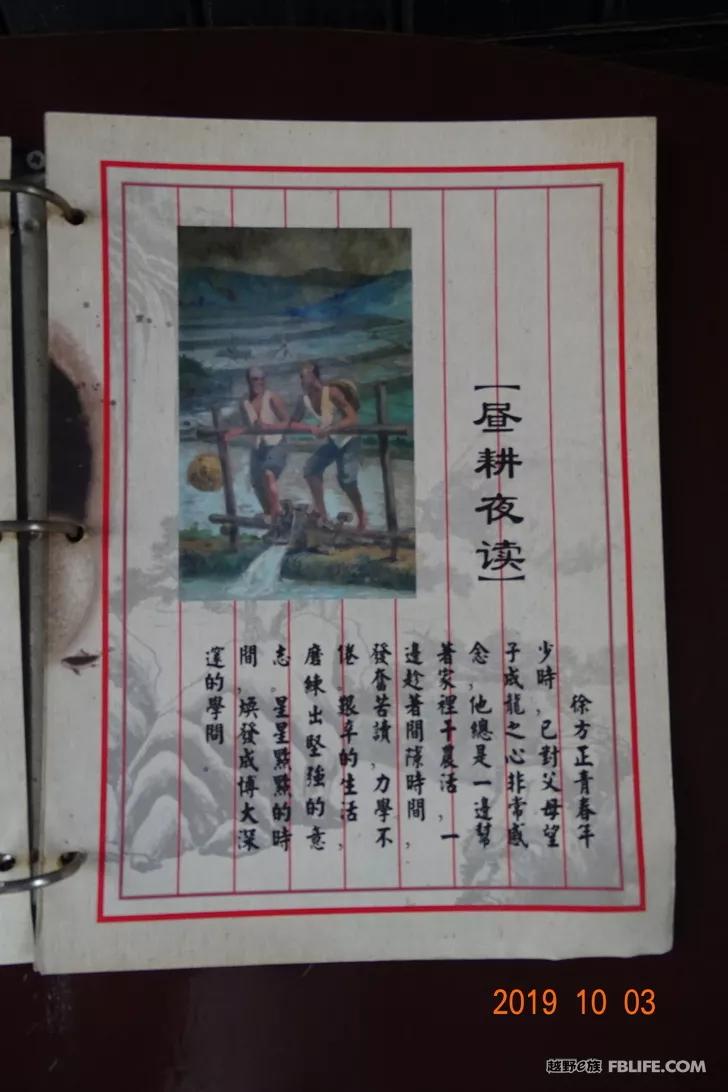 【昼耕夜读】
徐方正青春年
少時，已對父母望
子成龍之心非常感
念，他總是一邊幫
著家裡干農活，一
邊趁著間隙時間，
發奮苦讀，力學不
倦。艱辛的生活，
磨練出堅強的意
志。星星點點的時
間，煥發成博大深
邃的學問
2019 10 03
越野e族 FBLIFE.COM